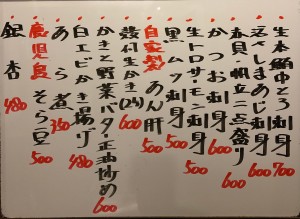 生本鮪中とろ刺身 700
活〆さしまあじ刺身 600
春貝・帆立二点盛り 600
かつお刺身 600
生トロサーモン刺身 500
黒ムツ刺身 500
自家製 あん肝 500
殻付生かき(1ヶ) 600
かきと野菜バタ正油炒め 600
白エビかき揚げ 480
あら煮 350
鹿児島 そら豆 500
銀杏 480